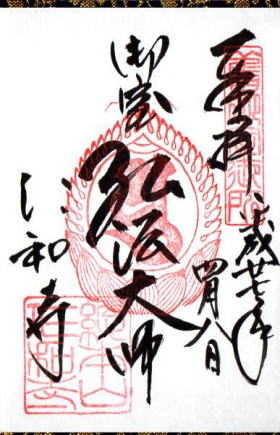 奉拝
平成廿七年
四月八日
御室
弘法大師
仁和寺